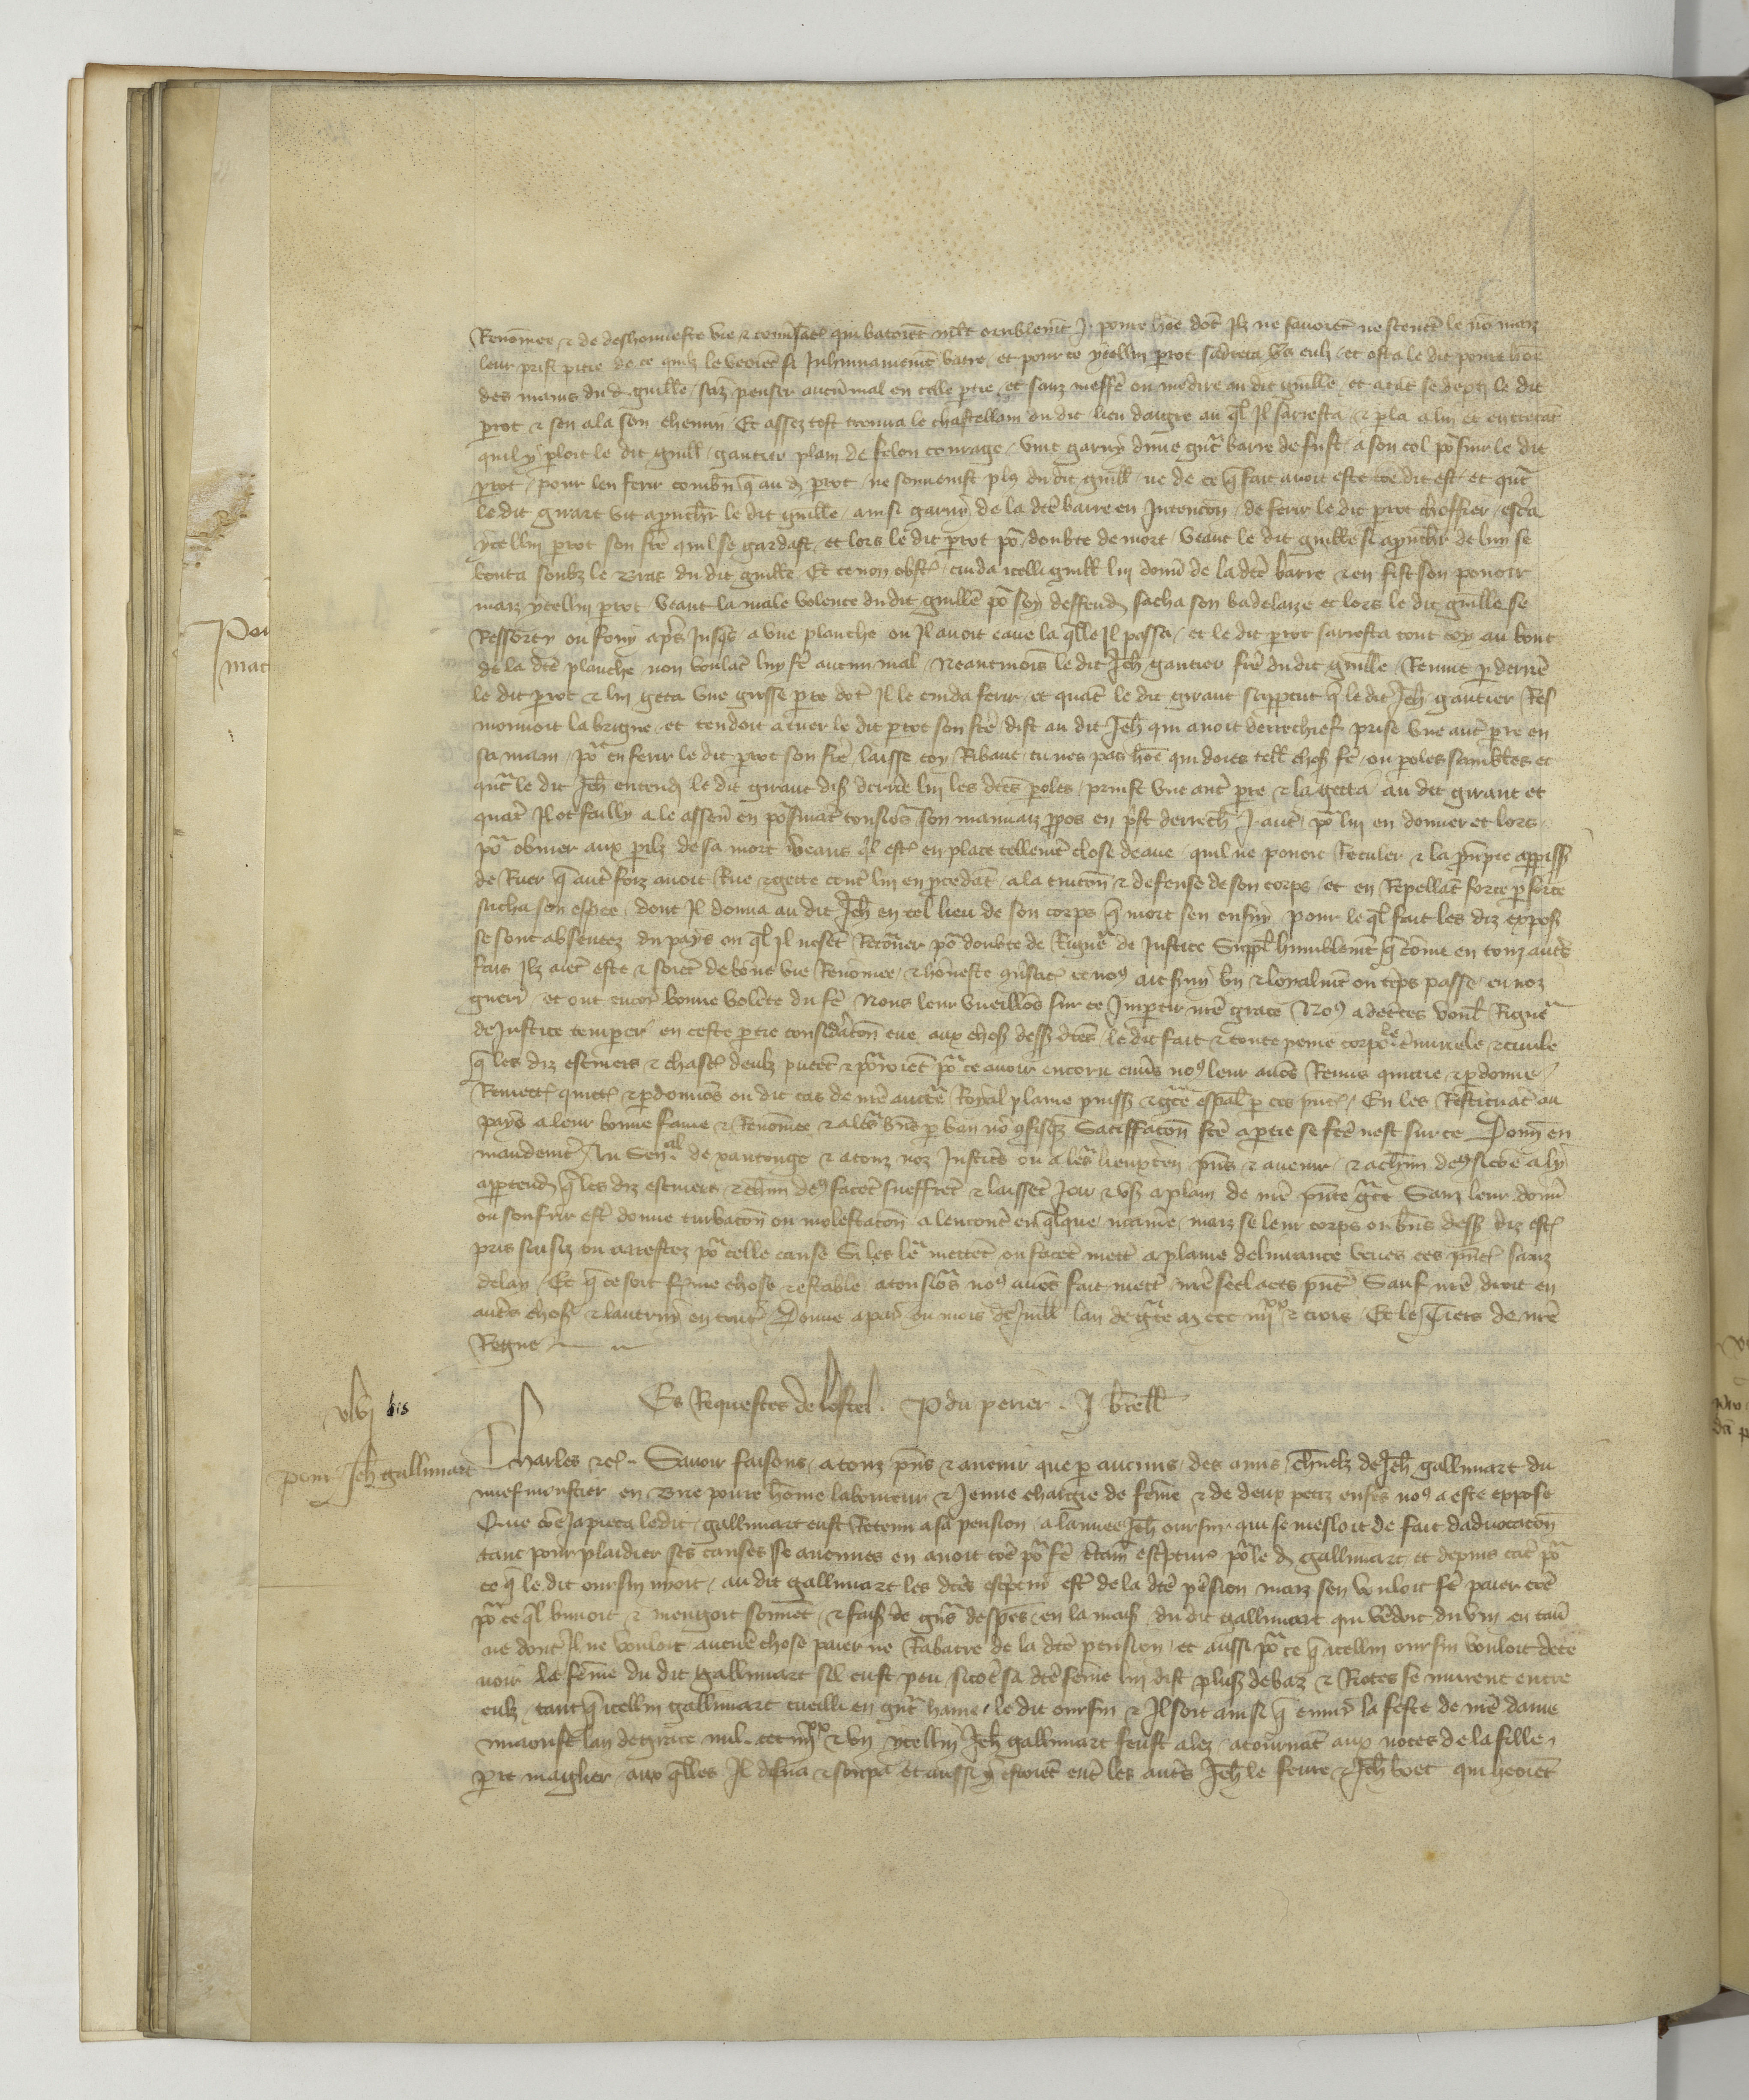 Renomee et de deshonneste vie et conversacion qui batoient moult orriblement J. poure home dont Ilz ne savoient ne scevent le nom maiz
leur prist pitie de ce quilz le veoient si Inhumainement batre et pour ce ycellui perot sadreca vers eulx et osta le dit poure home
des mains du d. guille sanz penser aucun mal en celle partie et sanz meffere ou mesdire au dit guille et atant se departi le dit
perot et sen ala son chemin Et assez tost trouva le chastellain du dit lieu daugre au quel Il sarresta et parla a lui et entretant
quil y parloit le dit guille gautier plain de felon courage vint garny dune grant barre de fust a son col poursuir le dit
perot pour len ferir combien que au d. perot ne souvenist plus du dit guille ne de ce que fait avoit este come dit est et quant
le dit girart vit aprouchier le dit guille ainsi garny de la dicte barre en Intencion de ferir le dit perot escria
ycellui perot son frere quil se gardast et lors le dit perot pour doubte de mort veant le dit guille si aprouchier de luy se
bouta soubz le bras du dit guille Et ce non obstant cuida icelli guille lui donner de la dicte barre et en fist son pouoir
maiz ycellui perot veant la male volente du dit guille pour soy deffendre sacha son badelaire et lors le dit guille se
Ressorty ou fouy apres Jusques a une planche ou Il avoit eaue la quelle Il passa et le dit perot sarresta tout coy au bout
de la dicte planche non voulant luy fere aucun mal Neantmoins le dit Jeh gautier frere du dit guille Revint par derriere
le dit perot et lui geta une grosse pierre dont Il le cuida ferir et quant le dit giraut sapperceut que le dit Jeh gautier Res
mouvoit la brigue et tendoit a tuer le dit perot son frere dist au dit Jeh qui avoit derrechief prise une autre pierre en
sa main pour en ferir le dit perot son frere laisse toy Ribaut tu nes pas home qui doies telle chose fere ou paroles semblables et
quant le dit Jeh entendi le dit giraut dis derriere lui les dictes paroles print une autre pierre et la getta au dit giraut et
quant Il ot failly a le assener en poursuivant tousiours son mauvaiz propos en prist derrechief J. autre pour lui en donner et lors
pour obvier aux perilz de sa mort veans quil estoit en place tellement close deaue quil ne pouoit Reculer et la
de Ruer que autrefoiz avoit Rue et gette contre lui en procedant a la tuicion et defense de son corps et en Repellant force par force
sacha son espee dont Il donna au dit Jeh en tel lieu de son corps que mort sen ensuy pour le quel fait les diz exposans
se sont absentez du pays ou quel Il nosent Retourner pour doubte de Rigueur de Justice Suppliant humblement que come en touz autres
faiz Ilz aient este et soient de bone vie Renomee et honneste conversacion et nous aient servi bien et loyalment ou temps passe en noz
guerres et ont encores bonne volente du fere Nous leur vueillons sur ce Impartir nostre grace Nous adecertes voulans Rigueur
de Justice temperer en ceste partie consideracion eue aux choses dessus dictes le dit fait et toute peine corporele criminele et civile
que les diz escuiers et chascun deulx puent et pourroient pour ce avoir encoru envers nous leur avons Remis quictie et pardonne
Remettons quictons et pardonnons ou dit cas de nostre auctorite Royal plaine puissance et grace especial par ces presentes En les Restituant au
pays a leur bonne fame et Renomee et a leurs biens par ban non confisquez Satisfacion faicte a partie se faicte nest sur ce Donnons en
mandement Au Senal de xantonge et a touz noz Justiciers ou a leurs lieuxtenans presens et avenir et a chascun deulx si come a lui
appartendra que les diz escuiers et chascun deulx facent sueffrent et laissent Joir et user a plain de nostre presente grace Sanz leur donner
ou souffrir estre donne turbacion ou molestacion a lencontre en quelque maniere maiz se leur corps ou biens dessus diz estoient
pris saisiz ou arrestez pour celle cause Si les leur mettent ou facent mettre a plaine delivrance veues ces presentes sanz
delay Et que ce soit ferme chose et estable a tousiours nous avons fait mettre nostre seel a ces presentes Sauf nostre droit en
autres choses et lautruy en toutes Donne a paris ou mois de Juillet lan de grace m ccc iiijxx et trois Et le Tiers de nostre
Regne
Es Requestes de lostel. P du perier. J
vjxxvj bis
pour Jeh gallimart
Charles etc. Savoir faisons a touz presens et avenir que par aucuns des amis charnelz de Jeh gallimart du
nuefmonstier en Brie poure homme laboureur et Jenne chargie de femme et de deux petiz enfans nous a este expose
Que come Japieca ledit gallimart eust Retenu a sa pension a lannee Jeh oursin qui se mesloit de fait dadvocacion
tant pour plaidier ses causes se aucunes en avoit come pour fere certaines escriptures pour le d. gallimart et depuis tant pour
ce que le dit oursin avoit au dit gallimart les dictes escriptures estre de la dicte pension maiz sen vouloit fere paier come
pour ce quil buvoit et mengoit souvent et faisoit de grans despens en la maison du dit gallimart qui vendoit du vin en taver
ne dont Il ne vouloit aucune chose paier ne Rabatre de la dicte pension et aussi pour ce que icellui oursin vouloit dece
voir la femme du dit gallimart sil eust peu sicome sa dicte femme lui dist plusieurs debaz et Riotes se murent entre
eulx tant que icellui gallimart cueilli en grant haine le dit oursin et Il soit ainsi que environ la feste de nostre dame
miaoust lan de grace mil ccc iiijxx et un ycellui Jeh gallimart feust alez a tournant aux noces de la fille
perre maiglier aux quelles Il disna et souppa Et aussi y estoient entre les autres Jeh le fevre et Jeh boet qui heoient